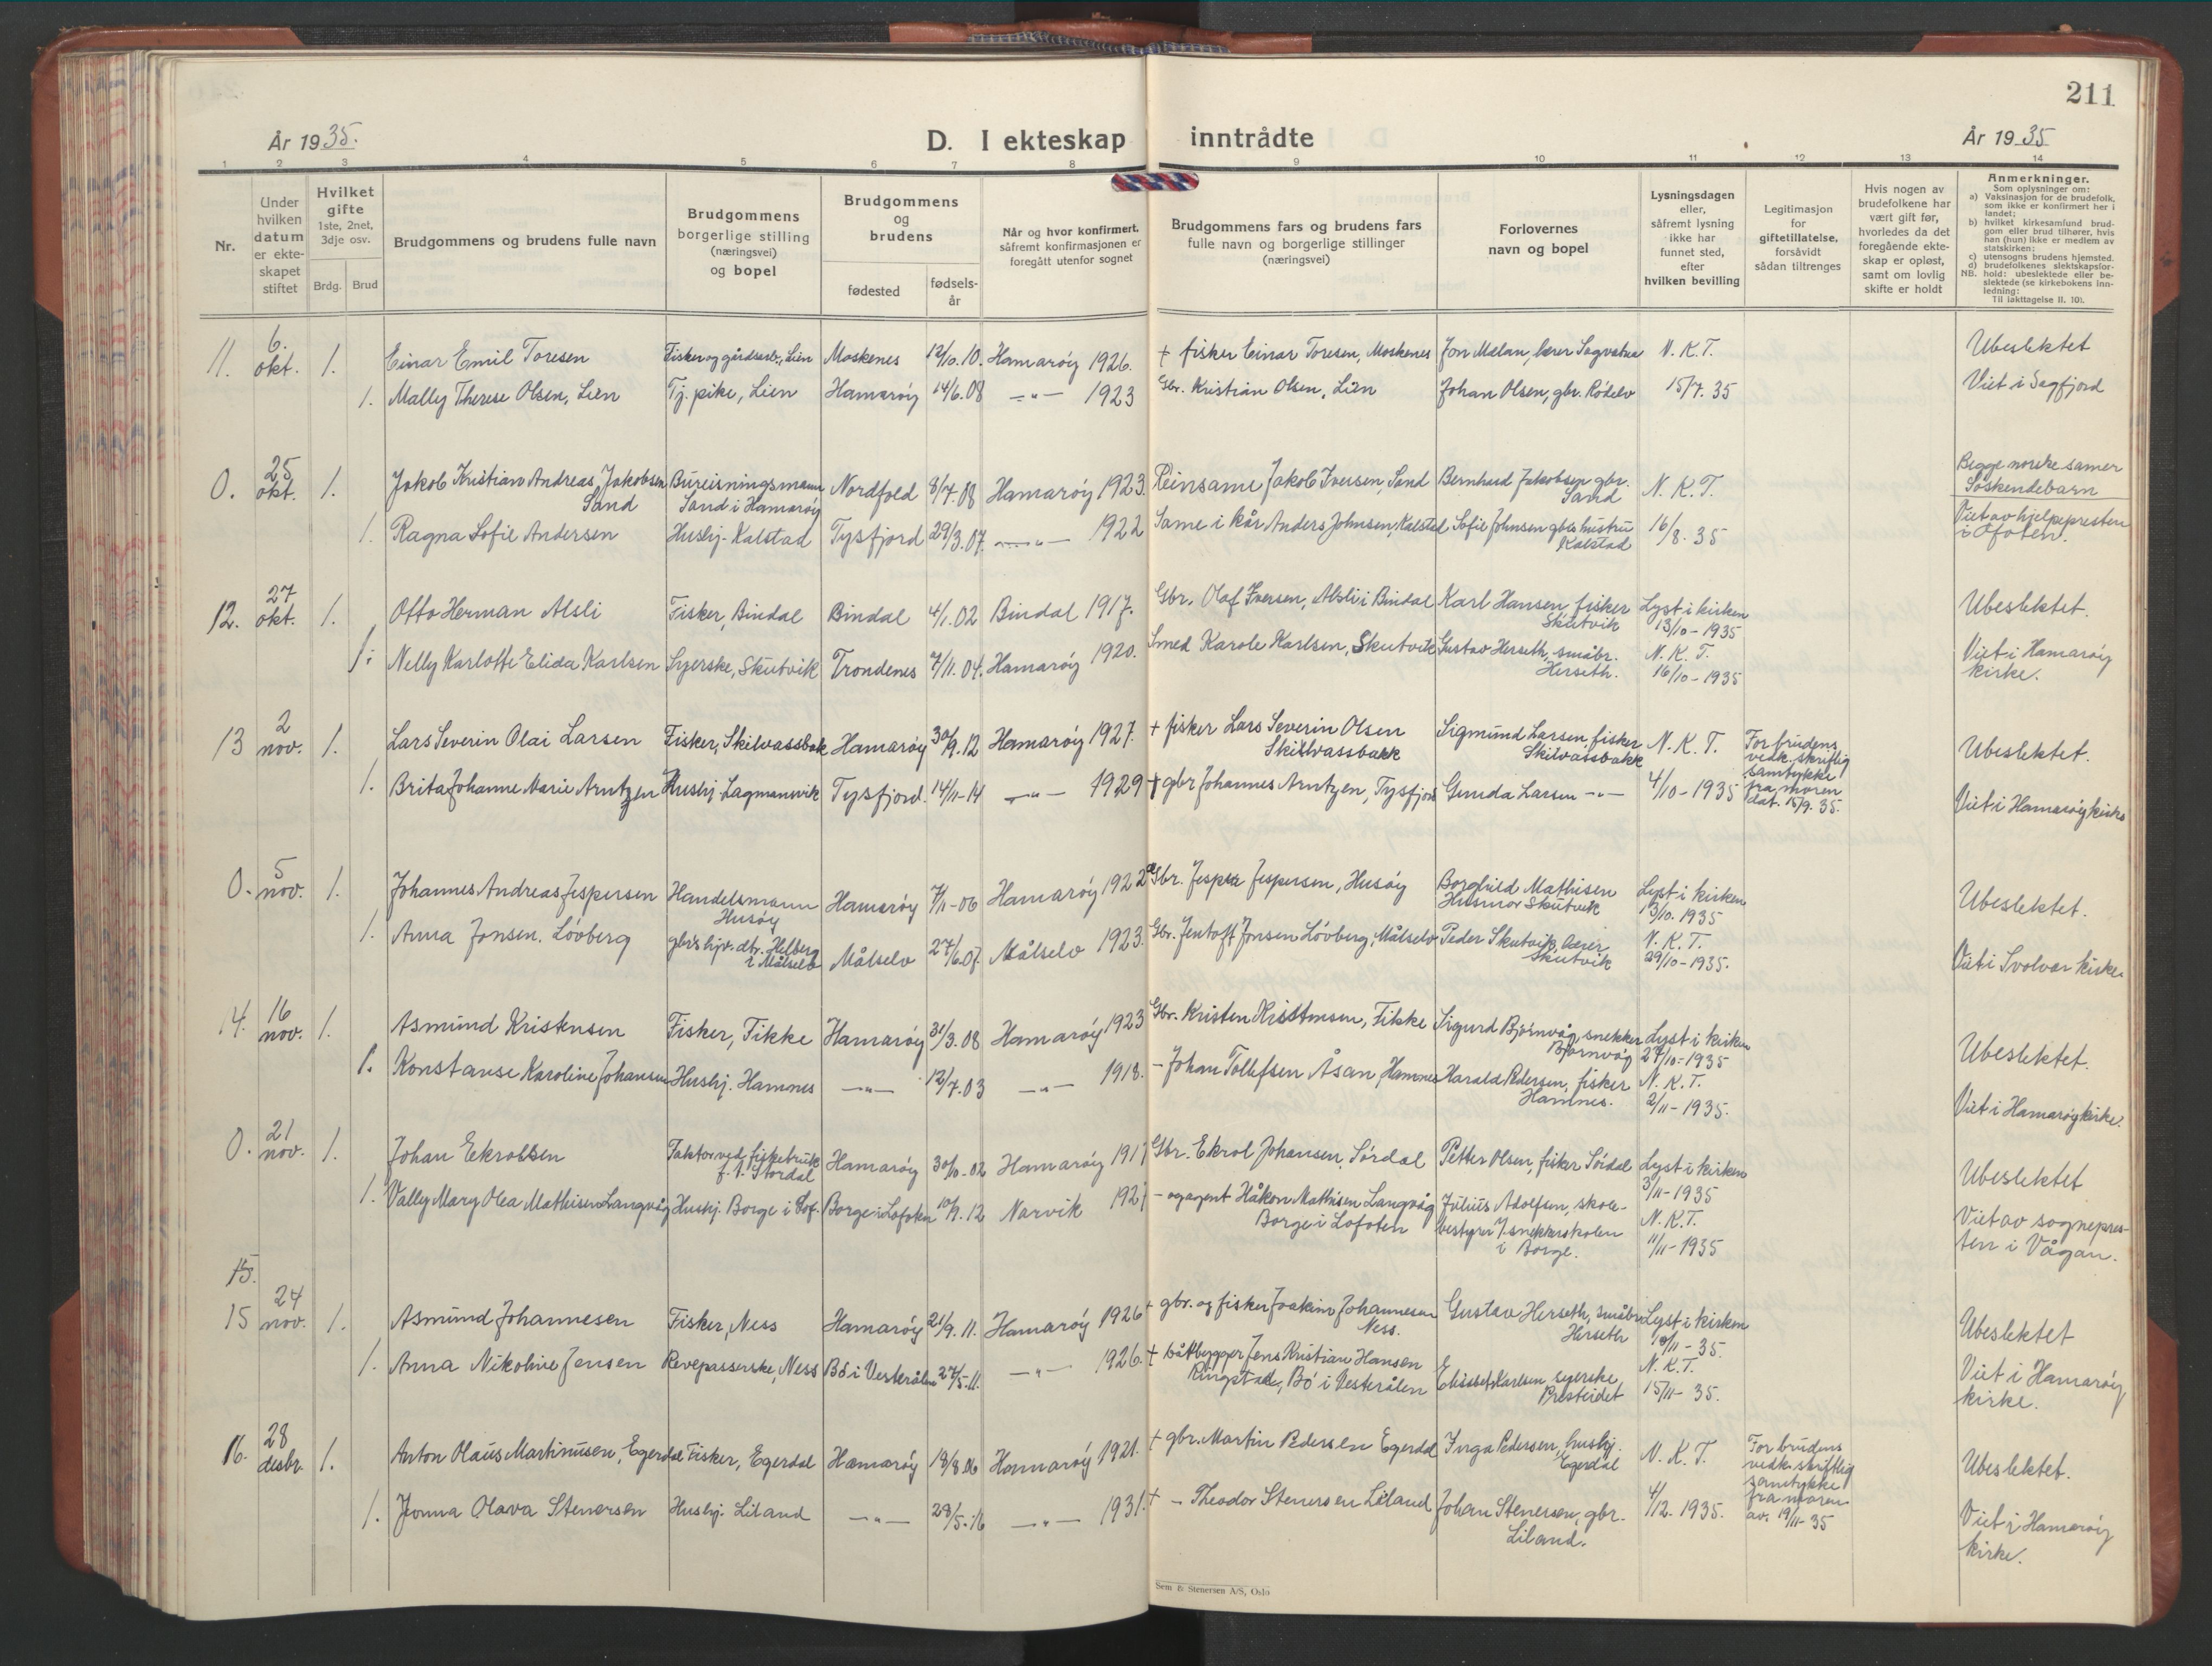 211
År 1935.
D. I ekteskap inntrådte
År 1935
1 2 3 4 5 6 7 8 9 10 11 12 13 14
Nr.
Under hvilken datum er ekte-skapet stiftet
Hvilket gifte 1ste, 2net, 3dje osv.
Brdg. Brud
Brudgommens og brudens fulle navn
Brudgommens borgerlige stilling (næringsvei) og bopel
Brudgommens og brudens
fødested
fødsels-år
Når og hvor konfirmert, såfremt konfirmasjonen er foregått utenfor sognet
Brudgommens fars og brudens fars fulle navn og borgerlige stillinger (næringsvei)
Forlovernes navn og bopel
Lysningsdagen eller, såfremt lysning ikke har funnet sted, efter hvilken bevilling
Legitimasjon for giftetillatelse, forsåvidt sådan tiltrenges
Hvis nogen av brudefolkene har vært gift før, hvorledes da det foregående ekte-skap er opløst, samt om lovlig skifte er holdt
Anmerkninger.
Som oplysninger om:
a) Vaksinasjon for de brudefolk, som ikke er konfirmert her i landet;
b) hvilket kirkesamfund brud-gom eller brud tilhører, hvis han (hun) ikke er medlem av statskirken;
c) utensogns brudens hjemsted.
d) brudefolkenes slektskapsfor-
NB. hold: ubeslektede eller be-slektede (se kirkebokens inn-ledning:
Til iakttagelse II. 10).
11. 6. okt. 1. Einar Emil Toresen Fisker og gårdsarb., Lien Moskenes 12/10.10. Hamarøy 1926. + fisker Einar Toresen, Moskenes Jon Mælan, lærer Sagvatna N. K. T. Ubeslektet
1. Mally Therese Olsen, Lien Tj. pike, Lien Hamarøy 14/6.08 —"— 1923 Gbr. Kristian Olsen, Lien Johan Olsen, gbr. Rødelv 15/7. 35 Viet i Sagfjord
0. 25 okt. 1. Jakob Kristian Andreas Jakobsen Sand Bureisningsmann Sand i Hamarøy Nordfold 8/7.08 Hamarøy 1923. Reinsame Jakob Iversen, Sand Bernhard Jakobsen gbr. Sand N. K. T. Begge norske samer Søskendebarn
1. Ragna Sofie Andersen Hushj. Kalstad Tysfjord 29/3.07. —"— 1922 Same i kår Anders Johnsen, Kalstad Sofie Johnsen gbrs hustru Kalstad 16/8. 35 Viet av hjelpepresten i Ofoten.
12. 27 okt. 1. Otto Herman Alsli Fisker, Bindal Bindal 4/1.02 Bindal 1917. Gbr. Olaf Iversen, Alsli i Bindal Karl Hansen, fisker Skutvik Lyst i kirken 13/10-1935 Ubeslektet.
1. Nelly Karlotte Elida Karlsen Syerske, Skutvik Trondenes 7/11.04. Hamarøy 1920. Smed Karole Karlsen, Skutvik Gustav Herseth, småbr. Herseth. N. K. T. 16/10-1935 Viet i Hamarøy kirke.
13 2 nov. 1. Lars Severin Olai Larsen Fisker, Skilvassbakk Hamarøy 30/9.12 Hamarøy 1927. + fisker Lars Severin Olsen Skilvassbakk Sigmund Larsen, fisker Skilvassbakk N. K. T. For brudens vedk. skriftlig samtykke fra moren dat. 15/9. 35. Ubeslektet.
1. Brita Johanne Marie Arntzen Hushj. Lagmannvik Tysfjord. 14/11-14 —"— 1929 + gbr Johannes Arntzen, Tysfjord Gunda Larsen —"— 4/10-1935 Viet i Hamarøy kirke
0. 5 nov. 1. Johannes Andreas Jespersen Handelsmann Husøy Hamarøy 7/11-06 Hamarøy 1922 Gbr. Jesper Jespersen, Husøy Borghild Mathisen Husmor Skutvik Lyst i kirken 13/10.1935 Ubeslektet.
1. Anna Jonsen. Løvberg gbrs hjv. dtr. Helberg i Målselv Målselv 27/6.07. Målselv 1923. Gbr. Jentoft Jonsen Løvberg, Målselv Peder Skutvik, lærer Skutvik N. K. T. 29/10-1935. Viet i Svolvær kirke.
14. 16 nov. 1. Asmund Kristensen Fisker, Fikke Hamarøy 31/3.08 Hamarøy 1923 Gbr. Kristen Kristensen, Fikke Sigurd Bjørnvåg, snekker Bjørnvåg Lyst i kirken 27/10-1935 Ubeslektet.
1. Konstanse Karoline Johansen Hushj. Hamnes —"— 12/7.03 —"— 1918. - Johan Tollefsen Åsan, Hamnes Harald Pedersen, fisker Hamnes. N. K. T. 2/11-1935. Viet i Hamarøy kirke.
0. 21 nov. 1. Johan Ekrolsen Faktor ved fiskebruk f. t. Størdal Hamarøy 30/10.02 Hamarøy 1917 Gbr. Ekrol Johansen, Sørdal Petter Olsen, fisker Sørdal Lyst i kirken 3/11-1935 Ubeslektet
1. Vally Mary Olea Mathisen Langvåg Hushj. Borge i Lof. Borge i Lofoten 10/9.12 Narvik 1927 - og agent Håkon Mathisen Langvåg Borge i Lofoten Julius Adolfsen, skole-bestyrer v. snekkerskolen i Borge. N. K. T. 11/11-1935 Viet av sognepres-ten i Vågan.
15.
15 24 nov. 1. Asmund Johannesen Fisker, Ness Hamarøy 21/9.11. Hamarøy 1926 + gbr. og fisker Joakim Johannesen Ness. Gustav Herseth, småbr. Herseth Lyst i kirken 10/11-35. Ubeslektet
1. Anna Nikoline Jensen Revepasserske, Ness Bø i Vesterålen 27/5.11. —"— 1926. + båtbygger Jens Kristian Hansen Ringstad, Bø i Vesterålen Elisabet Karlsen, syerske, Presteidet N. K. T. 15/11-35. Viet i Hamarøy kirke.
16. 28 desbr. 1. Anton Olaus Martinusen, Egerdal Fisker, Egerdal Hamarøy 18/8.06 Hamarøy 1921. + gbr. Martin Pedersen Egerdal Inga Pedersen, hushj. Egerdal N. K. T. For brudens vedk. skriftlig samtykke fra moren av. 19/11-35 Ubeslektet.
1. Jonna Olava Stenersen Hushj. Liland —"— 28/5.16 —"— 1931. + - Theodor Stenersen Liland Johan Stenersen, gbr. Liland. 4/12. 1935. Viet i Hamarøy kirke.
Sem & Stenersen A/S, Oslo